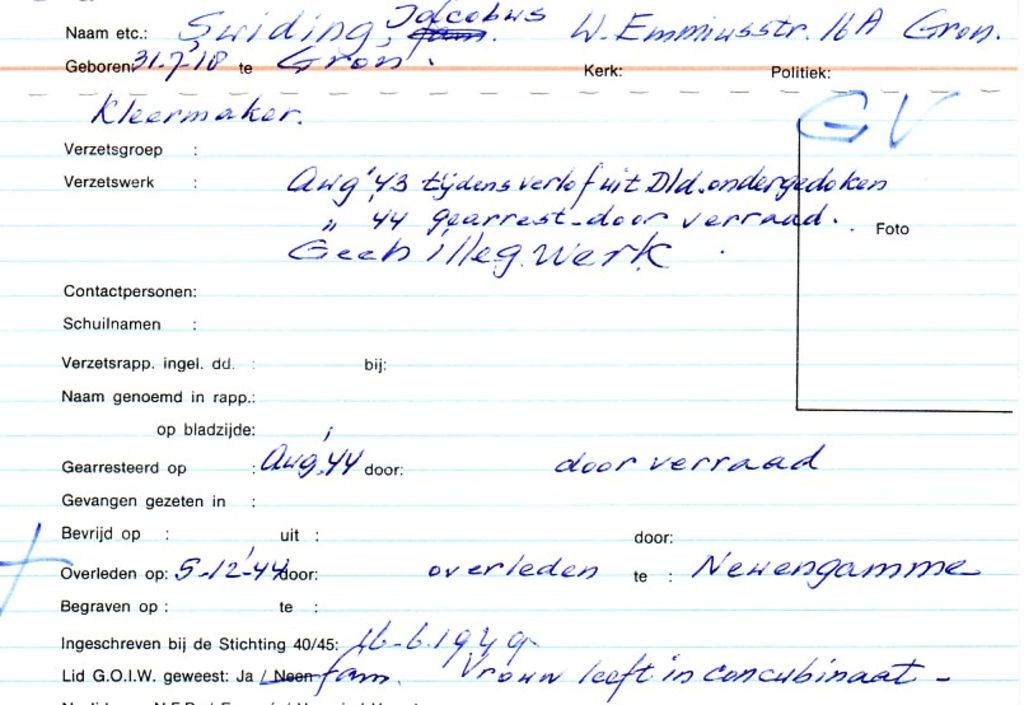 Naam etc.: Swiding, Jacobus fam. W. Emmiusstr. 16A Gron.
Geboren: 31.7.18 te Gron. Kerk: Politiek:
Kleermaker. GV
Verzetsgroep :
Verzetswerk : Aug '43 tijdens verlof uit Dld. ondergedoken
" '44 gearrest. door verraad.
Foto
Geen illeg. werk
Contactpersonen:
Schuilnamen :
Verzetsrapp. ingel. dd. : bij:
Naam genoemd in rapp.:
op bladzijde:
Gearresteerd op : Aug. '44 door: door verraad
Gevangen gezeten in :
Bevrijd op : uit : door:
Overleden op: 5-12-'44 door: overleden te : Neuengamme
Begraven op : te :
Ingeschreven bij de Stichting 40/45: 16-6-1949
Lid G.O.I.W. geweest: Ja / Neen fam. Vrouw leeft in concubinaat -